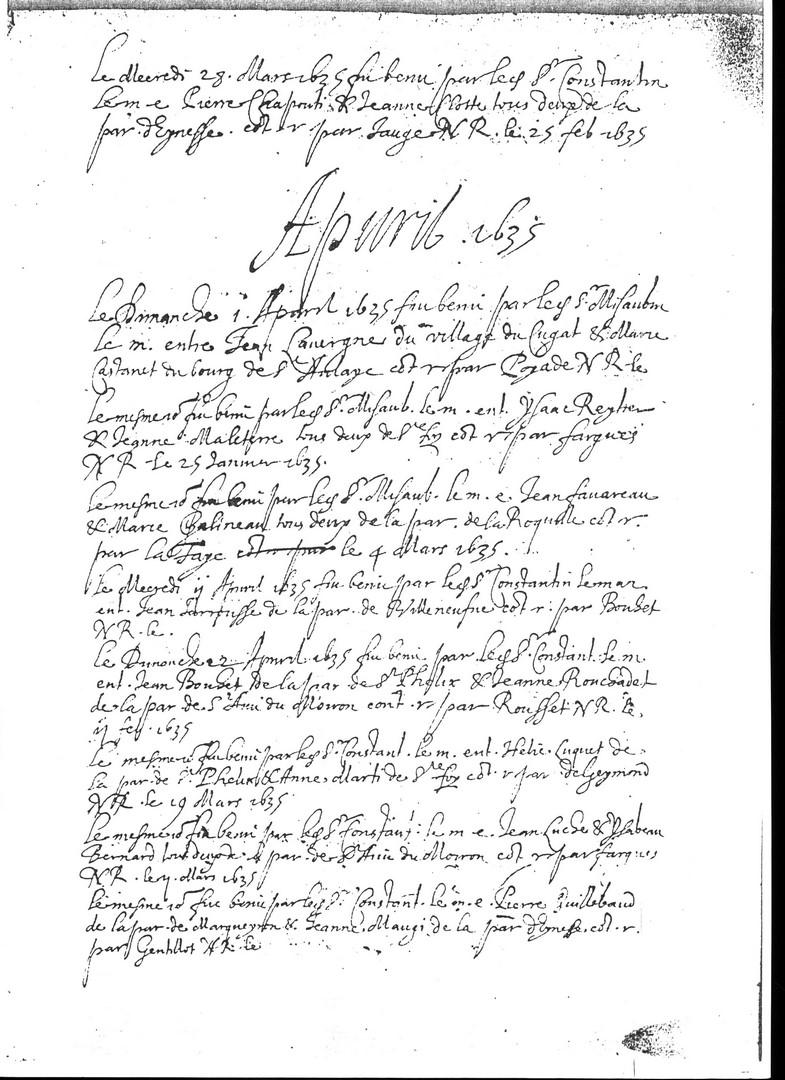 Le Mecredi 28. Mars 1635 fu beni par led Sr. Constantin
le m e Pierre Chapouti & Jeanne Clotte tous deux de la
par. d'Eynesse. cot r par Jauge N R. le 25 feb 1635
Apuril 1635
Le Dimanche 1. Apuril 1635 fu beni par led Sr. Misaubin
le m. entre Jean Lauergne du village du Cugat & Marie
Castanet du bourg de Ste Aulaye cot r par Pojade N R. le
le mesme io fu beni par led Sr. Misaub. le m. ent. Ysaac Reytier
& Jeanne Maleterre tous deux de Ste foy cot r par fargues
N R le 25 Januier 1635.
le mesme io fu beni par led Sr. Misaub. le m. e. Jean fauareau
& Marie Galineau tous deux de la par. de la Roquille cot r.
par la Faye le 4 Mars 1635.
Le Mecredi 11 Apuril 1635 fu beni par led Sr Constantin le mar
ent. Jean de la par. de Villeneufue cot r. par Bouhet
N R. le.
Le Dimanche 2 Apuril 1635 fu beni par led Sr. Constant. le m.
ent. Jean Bouhet de la par de St Phelix & Jeanne Rouchadet
de la par de St Aui du Moiron cont r par Rousset N R. le
11 feu. 1635
le mesme io fu beni par led Sr Constant. le m. ent. Helie Cuquet de
la par. de St. Phelix & Anne Marti de Ste foy cot. r par deGeymond
N R. le 19 Mars 1635
le mesme io fu beni par led Sr Constant. le m e. Jean Luche & Ysabeau
Bernard tous deux de par. de St Aui du Moiron cot r par fargues
N R. le 11 Mars 1635
le mesme io fu beni par led Sr. Constant. le m. e. Pierre Guillebaud
de la par. de Margueyron & Jeanne Maugi de la par d'Eynesse. cot. r.
par Gentillot N R. le